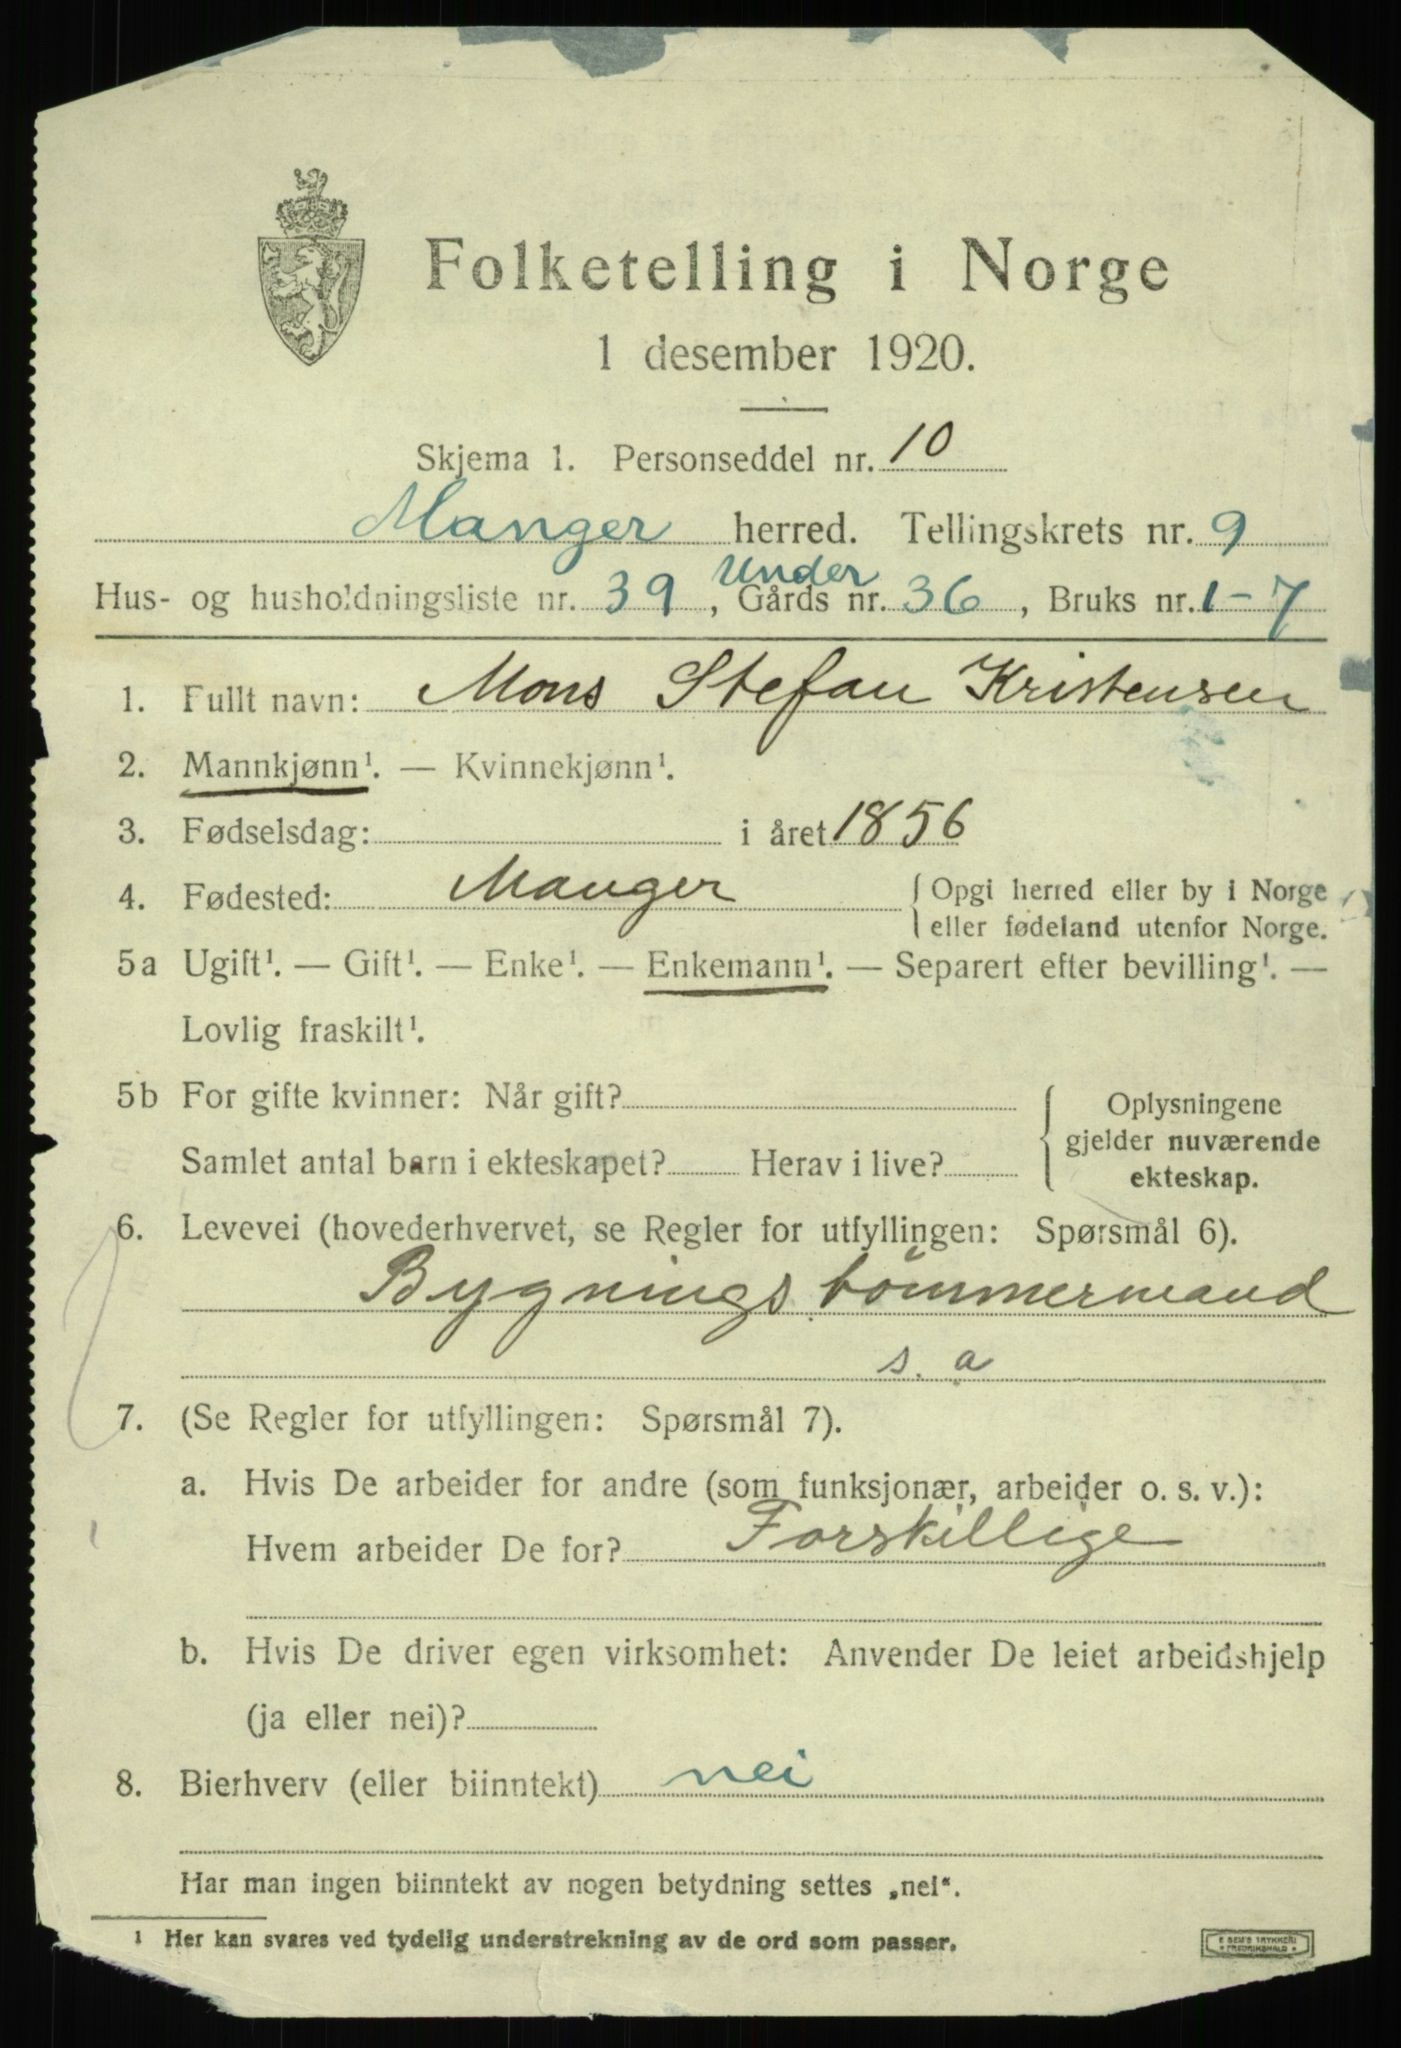 Folketelling i Norge
1 desember 1920.
Skjema 1. Personseddel nr. 10
Manger herred. Tellingskrets nr. 9
Under
Hus- og husholdningsliste nr. 39, Gårds nr. 36, Bruks nr. 1-7
1. Fullt navn: Mons Stefan Kristensen
2. Mannkjønn¹. — Kvinnekjønn¹.
3. Fødselsdag: i året 1856
4. Fødested: Manger { Opgi herred eller by i Norge
eller fødeland utenfor Norge.
5a Ugift¹. — Gift¹. — Enke¹. — Enkemann¹. — Separert efter bevilling¹. —
Lovlig fraskilt¹.
5b For gifte kvinner: Når gift? { Oplysningene
gjelder nuværende
Samlet antal barn i ekteskapet? Herav i live?
ekteskap.
6. Levevei (hovederhvervet, se Regler for utfyllingen: Spørsmål 6).
Bygningstömmermand
s. a
7. (Se Regler for utfyllingen: Spørsmål 7).
a. Hvis De arbeider for andre (som funksjonær, arbeider o. s. v.):
Hvem arbeider De for? Forskillige
b. Hvis De driver egen virksomhet: Anvender De leiet arbeidshjelp
(ja eller nei)?
8. Bierhverv (eller biinntekt) nei
Har man ingen biinntekt av nogen betydning settes „nei“.
¹ Her kan svares ved tydelig understrekning av de ord som passer.
E SEM'S TRYKKERI
* FREDRIKSHALD *